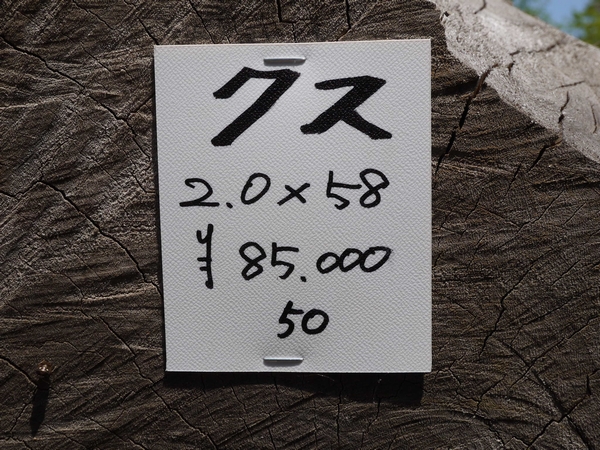 クス
2.0×58
¥85.000
50